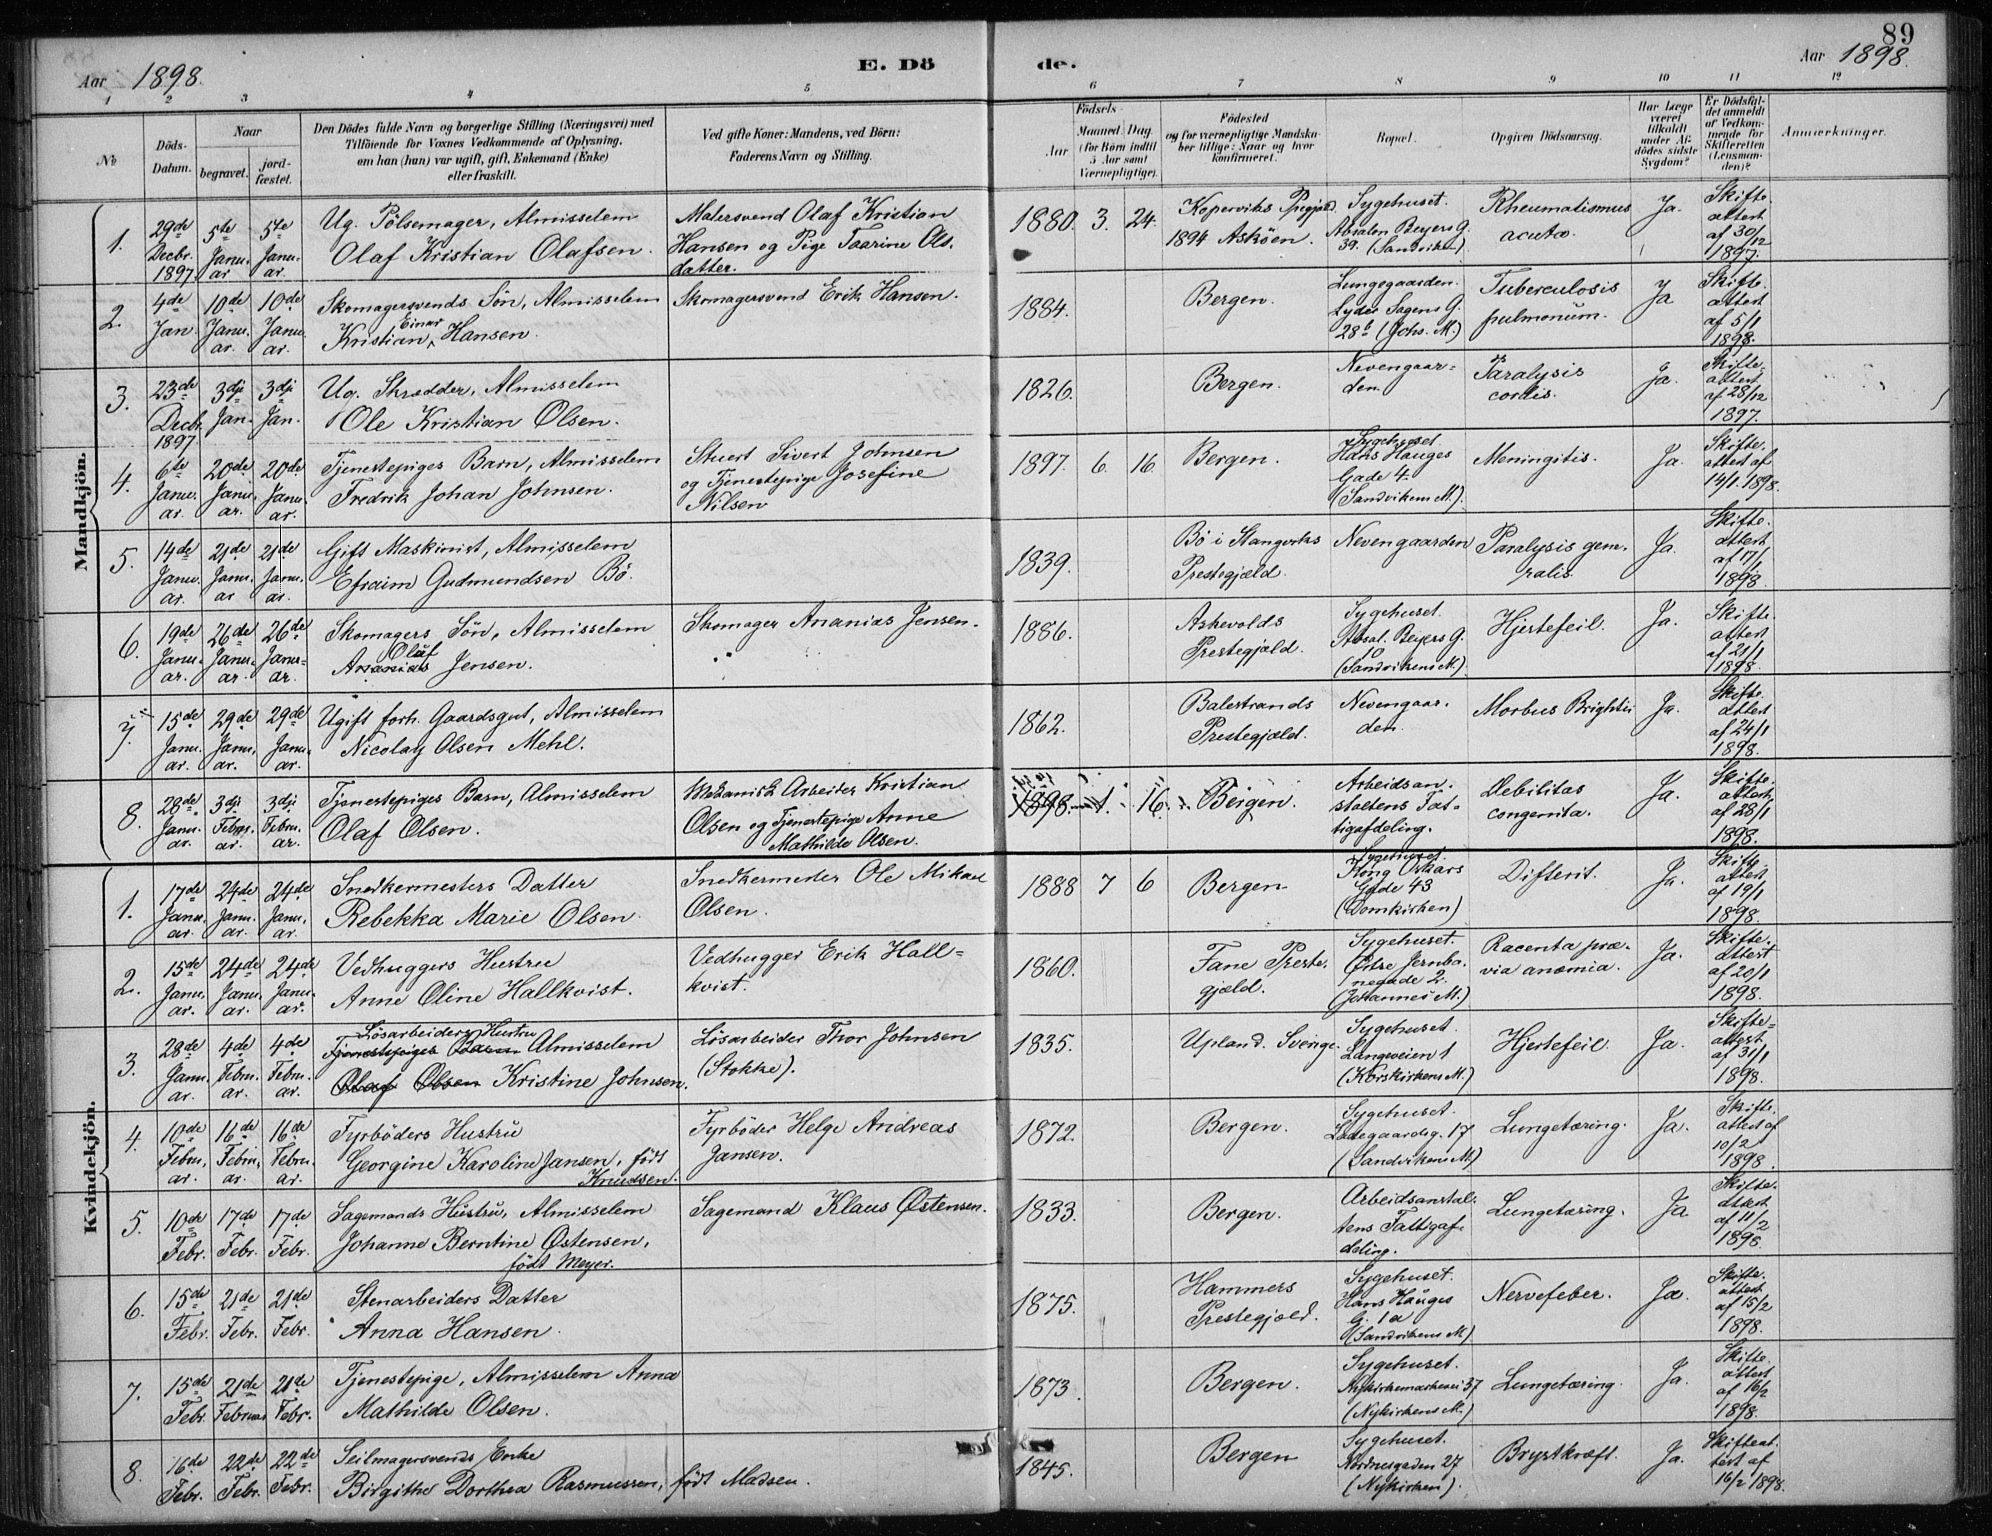 89
Aar 1898.
E. Dö
de.
Aar 1898.
1 2 3 4 5 6 7 8 9 10 11 12
No
Döds-
Datum.
Naar
begravet.
jord-
fæstet.
Den Dödes fulde Navn og borgerlige Stilling (Næringsvei) med
Tilföiende for Voxnes Vedkommende af Oplysning,
om han (hun) var ugift, gift, Enkemand (Enke)
eller fraskilt.
Ved gifte Koner: Mandens, ved Börn:
Faderens Navn og Stilling.
Födsels-
Aar
Maaned. Dag.
(for Börn indtil
5 Aar samt
Værnepligtige).
Födested
og for værnepligtige Mandska-
ber tillige: Naar og hvor
konfirmeret.
Bopæl.
Opgiven Dödsaarsag.
Har Læge
været
tilkaldt
under Af-
dödes sidste
Sygdom?
Er Dödsfal-
det anmeldt
af Vedkom-
mende for
Skifteretten
(Lensman-
den)?
Anmærkninger.
Mandkjön.
1.
29de
Decbr.
1897.
5te
Janu-
ar
5te
Janu-
ar.
Ug. Pölsemager, Almisselem
Olaf Kristian Olafsen.
Malersvend Olaf Kristian
Hansen og Pige Taarine Ols-
datter.
1880. 3. 24.
Kopervik Prgjæld.
1894 Asköen.
Sygehuset.
Absalon Beyers G.
39. (Sandviken).
Rheumatismus
acuta.
Ja.
Skifte-
attest
af 30/12
1897.
2.
4de
Jan.
10de
Janu-
ar.
10de
Janu-
ar.
Skomagersvends Sön, Almisselem
Kristian Einar Hansen.
Skomagersvend Erik Hansen.
1884.
Bergen.
Lungegaarden.
Lyder Sagens G.
28b (Johs. M.)
Tuberculosis
pulmonum.
Ja
Skifte-
attest
af 5/1
1898.
3.
23de
Decbr.
1897
3dji
Jan.
3dji
Jan.
Ug. Skrædder, Almisselem
Ole Kristian Olsen.
1826.
Bergen.
Nevengaar-
den.
Paralysis
cordis.
Ja.
Skifte-
attest
af 28/12
1897.
4.
6te
Janu-
ar.
20de
Janu-
ar.
20de
Janu-
ar.
Tjenestepiges Barn, Almisselem
Fredrik Johan Johnsen.
Stuert Sivert Johnsen
og Tjenestepige Josefine
Nilsen
1897. 6. 16.
Bergen.
Sygehuset.
Hans Hauges
Gade 4.
(Sandvikens M.)
Meningitis.
Ja.
Skifte-
attest af
14/1. 1898.
5.
14de
Janu-
ar.
21de
Janu-
ar
21de
Janu-
ar.
Gift Maskinist, Almisselem
Efraim Gudmundsen Bö.
1839.
Bö i Stangviks
Prestegjæld.
Nevengaarden
Paralysis gene-
ralis.
Ja.
Skifte-
attest
af 17/1
1898.
6.
19de
Janu-
ar.
26de
Janu-
ar
26de
Janu-
ar
Skomagers Sön, Almisselem
Olaf
Ananias Jensen.
Skomager Ananias Jensen.
1886.
Askevolds
Prestegjæld.
Sygehuset.
Absal. Beyers G.
10
(Sandvikens M.)
Hjertefeil.
Ja.
Skifte-
attest
af 21/1
1898.
7.
15de
Janu-
ar.
29de
Janu-
ar.
29de
Janu-
ar.
Ugift forh. Gaardsgut, Almisselem
Nicolay Olsen Mehl.
1862.
Balestrands
Prestegjæld.
Nevengaar-
den.
Morbus Brightii
Ja.
Skifte-
attest
af 24/1
1898.
8.
28de
Janu-
ar.
3dji
Febru-
ar.
3dji
Febru-
ar.
Tjenestepiges Barn, Almisselem
Olaf Olsen.
Mekanisk Arbeider Kristian
Olsen og Tjenestepige Anne
Mathilde Olsen.
1898. 1. 16.
Bergen.
Arbeidsan-
staltens Fat-
tigafdeling.
Debilitas
congenita.
Ja.
Skifte-
attest
af 28/1
1898.
Kvindekjön.
1.
17de
Janu-
ar.
24de
Janu-
ar.
24de
Janu-
ar.
Snedkermesters Datter
Rebekka Marie Olsen.
Snedkermester Ole Mikael
Olsen.
1888 7 6
Bergen
Sygehuset.
Kong Oskars
Gade 43
(Domkirken)
Difterit.
Ja.
Skifte-
attest
af 19/1
1898.
2.
15de
Janu-
ar.
24de
Janu-
ar.
24de
Janu-
ar.
Vedhuggers Hustru
Anne Oline Hallkvist.
Vedhugger Erik Hall-
kvist.
1860.
Fane Preste-
gjæld.
Sygehuset.
Östre Jernba-
negade 2.
(Johannes M.)
Placenta præ-
via anæmia.
Ja.
Skifte-
attest
af 20/1
1898.
3.
28de
Janu-
ar.
4de
Febru-
ar.
4de
Febru-
ar.
Lösarbeiders Hustru
Tjenestepiges Barn Almisselem
Olaf Olsen Kristine Johnsen.
Lösarbeider Thor Johnsen
(Stokke).
1835.
Upland. Sverige.
Sygehuset.
Langeveien 1
(Korskirkens M.)
Hjertefeil.
Ja.
Skifte-
attest
af 31/1
1898.
4.
10de
Febru-
ar.
16de
Febru-
ar.
16de
Febru-
ar.
Fyrböders Hustru
Georgine Karoline Jansen, födt
Knudsen.
Fyrböder Helge Andreas
Jansen.
1872.
Bergen.
Sygehuset.
Ladegaardsg. 17
(Sandvikens M.)
Lungetæring.
Ja.
Skifte-
attest af
10/2
1898.
5.
10de
Febr.
17de
Febr.
17de
Febr.
Sagemands Hustru, Almisselem
Johanne Berntine Østensen,
födt Meyer.
Sagemand Klaus Østensen.
1833.
Bergen.
Arbeidsanstal-
tens Fattigaf-
deling.
Lungetæring.
Ja
Skifte-
attest
af 11/2
1898.
6.
15de
Febr.
21de
Febr.
21de
Febr.
Stenarbeiders Datter
Anna Hansen.
1875.
Hammers
Prestegjæld.
Sygehuset.
Hans Hauges
G. 1a
(Sandvikens M)
Nervefeber.
Ja.
Skifte-
attest
af 15/2
1898.
7.
15de
Febr.
21de
Februar
21de
Febr.
Tjenestepige, Almisselem Anna
Mathilde Olsen.
1873.
Bergen.
Sygehuset.
Nykirkesmuget 37
(Nykirkens M.)
Lungetæring.
Ja.
Skifte-
attest
af 16/2
1898.
8.
16de
Febr.
22de
Febr.
22de
Febr.
Seilmagersvends Enke
Birgithe Dorthea Rasmussen, födt Madsen.
1845.
Bergen
Sygehuset.
Nordnesgaden 27
(Nykirken).
Brystkræft.
Ja.
Skifteat-
test af
16/2 1898.